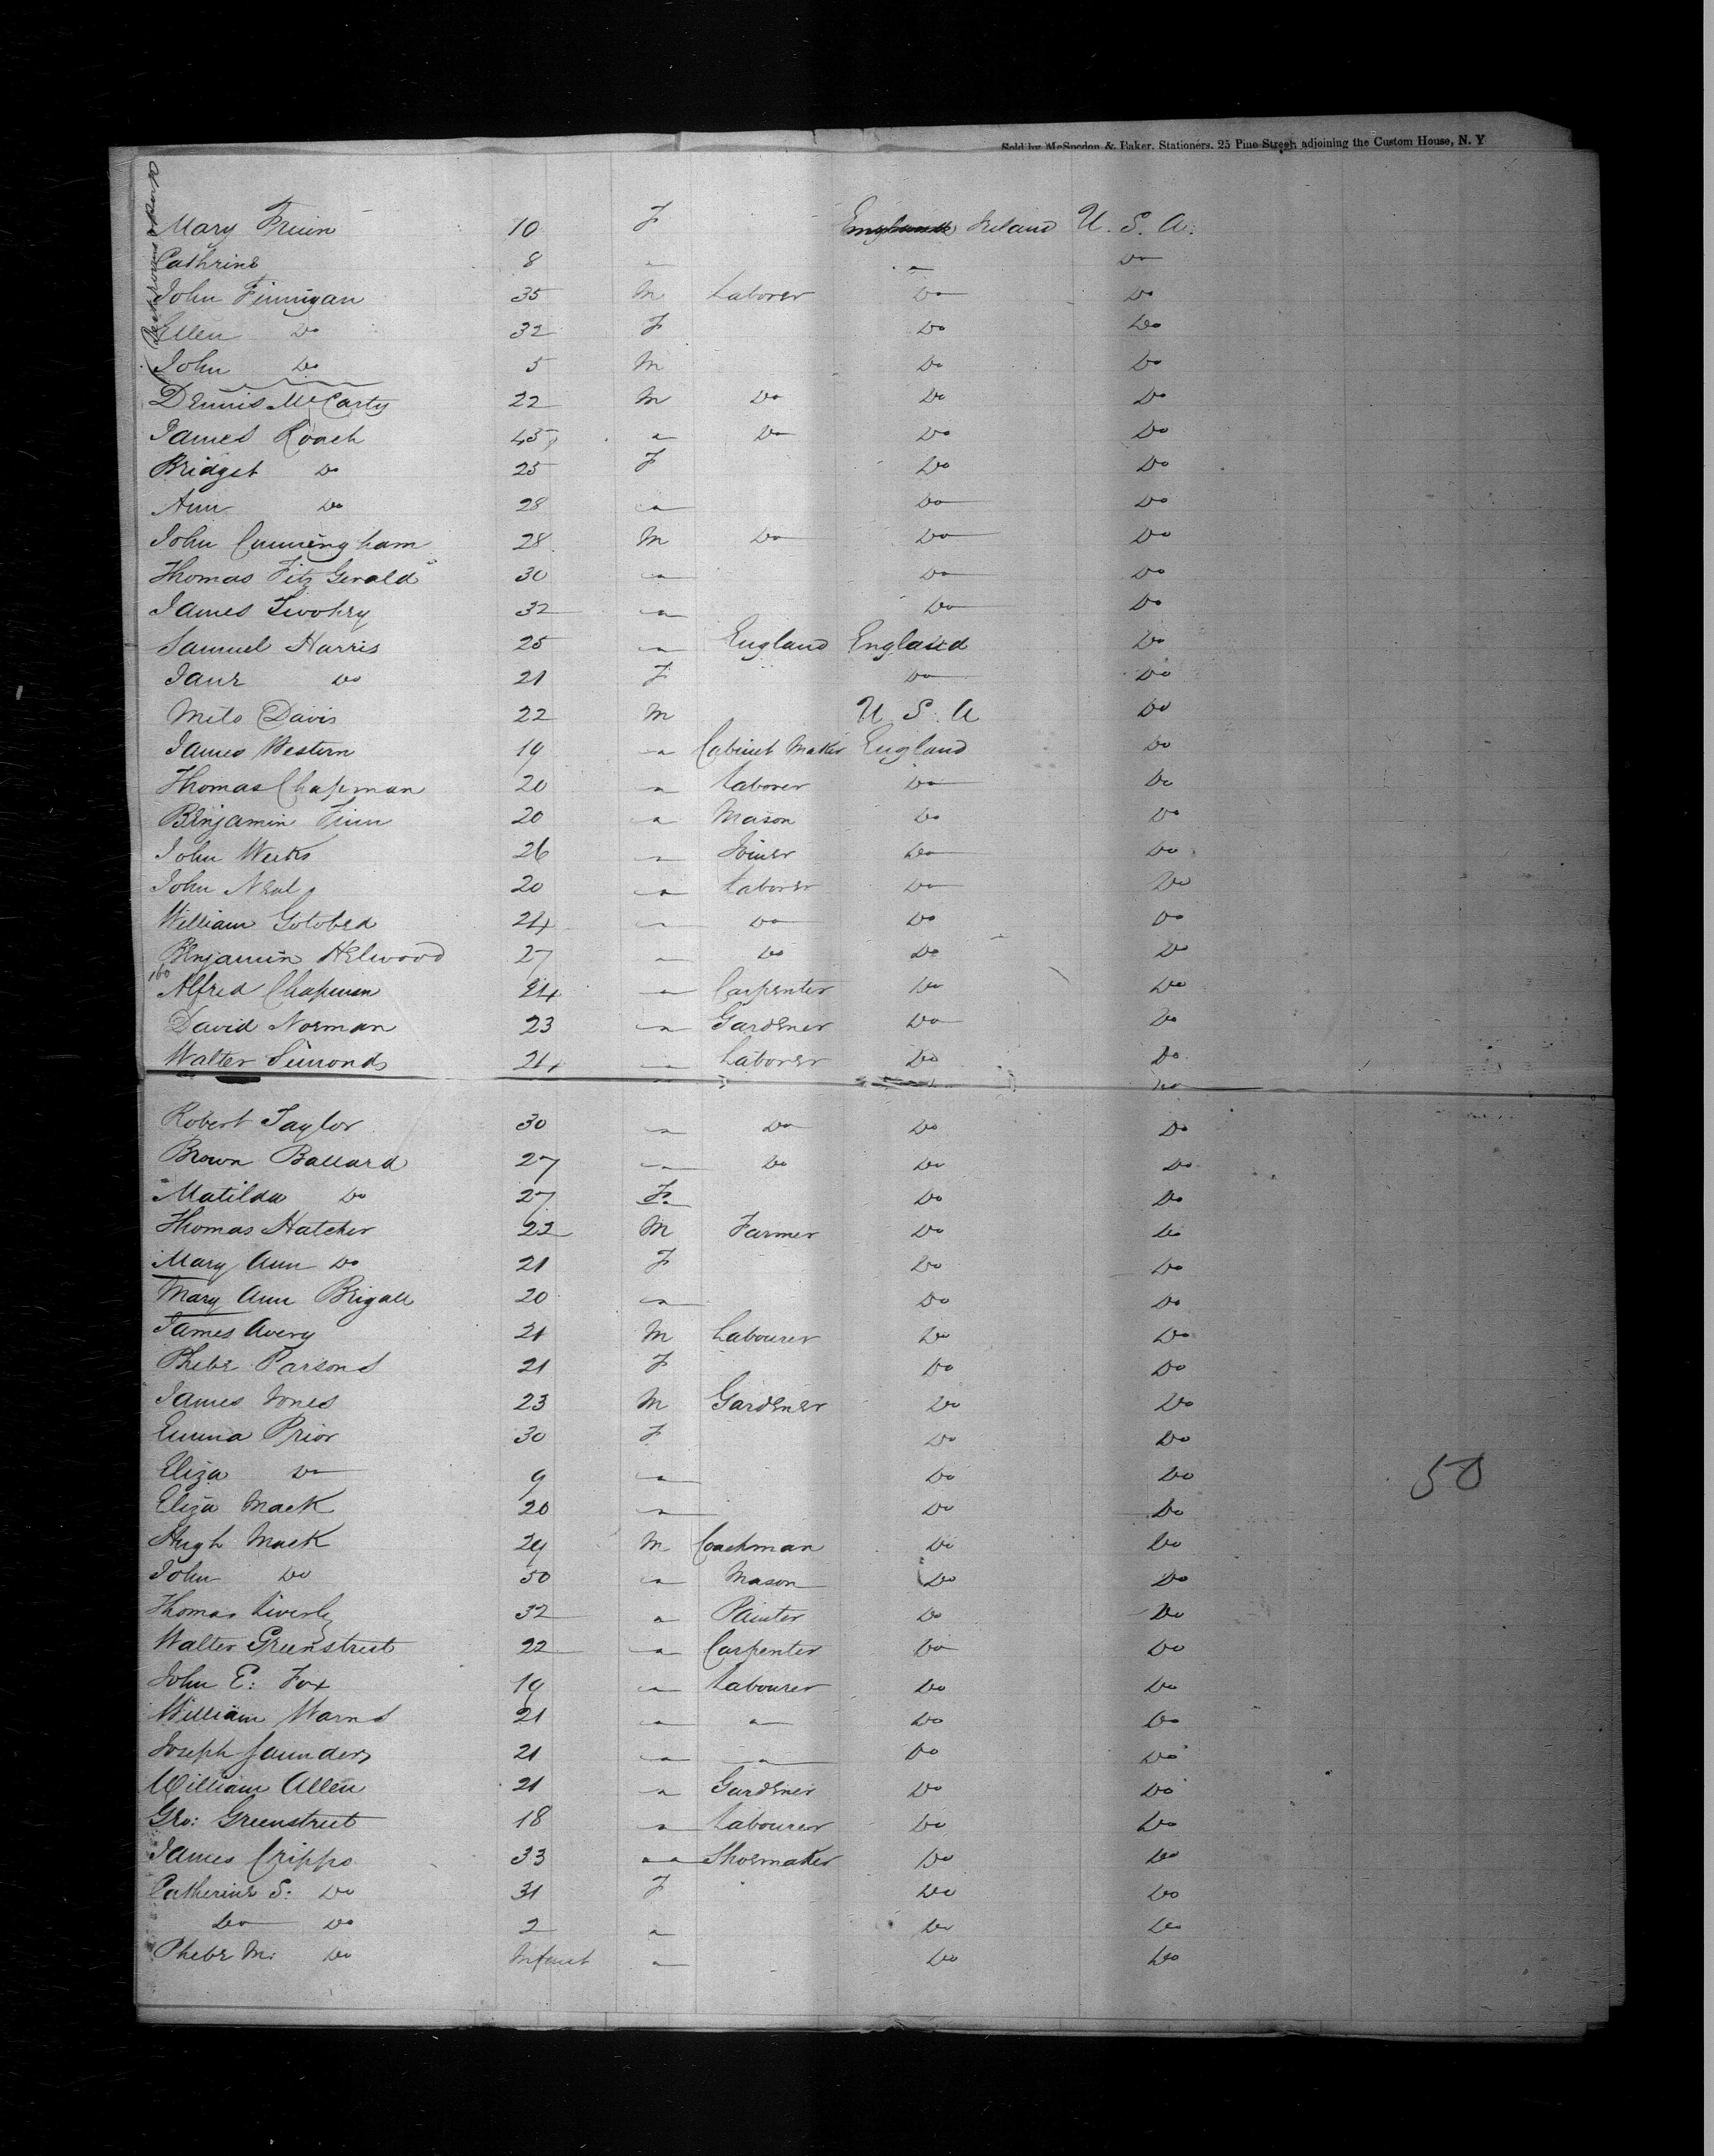 Sold by McSpedon & Baker, Stationers, 25 Pine Street adjoining the Custom House, N. Y
Mary 10 F England Ireland U. S. A.
Cathrine 8 " " Do
John Finnigan 35 M Laborer Do Do
Ellen Do 32 F Do Do
John Do 5 M Do Do
Dennis McCarty 22 M Do Do Do
James Roach 45 " Do Do Do
Bridget Do 25 F Do Do
Ann Do 28 " Do Do
John Cunningham 28 M Do Do Do
Thomas Fitz Gerald 30 " Do Do
James 32 " Do Do
Samuel Harris 25 " England England Do
Jane Do 21 F Do Do
Milo Davis 22 M U. S. A Do
James Western 19 " Cabinet Maker England Do
Thomas Chapman 20 " Laborer Do Do
Benjamin Finn 20 " Mason Do Do
John Weeks 26 " Joiner Do Do
John Neal 20 " Laborer Do Do
William Gotobed 24 " Do Do Do
Benjamin Helwood 27 " Do Do Do
160
Alfred Chapman 24 " Carpenter Do Do
David Norman 23 " Gardener Do Do
Walter Simonds 24 " Laborer Do Do
Robert Taylor 30 " Do Do Do
Brown Ballard 27 " Do Do Do
Matilda Do 27 F Do Do
Thomas Hatcher 22 M Farmer Do Do
Mary Ann Do 21 F Do Do
Mary Ann Brigall 20 " Do Do
James Avery 21 M Labourer Do Do
Phebe Parsons 21 F Do Do
James Jones 23 M Gardener Do Do
Emma Prior 30 F Do Do
Eliza Do 9 " Do Do
50
Eliza Mack 20 " Do Do
Hugh Mack 29 M Coachman Do Do
John Do 50 " Mason Do Do
Thomas 32 " Painter Do Do
Walter Greenstreet 22 " Carpenter Do Do
John E: Fox 19 " Labourer Do Do
William Warns 21 " " Do Do
Joseph Saunders 21 " " Do Do
William Allen 21 " Gardener Do Do
Geo: Greenstreet 18 " Labourer Do Do
James Cripps 33 " " Shoemaker Do Do
Catherine S: Do 31 F Do Do
Do Do 2 " Do Do
Phebe M: Do Infant " Do Do